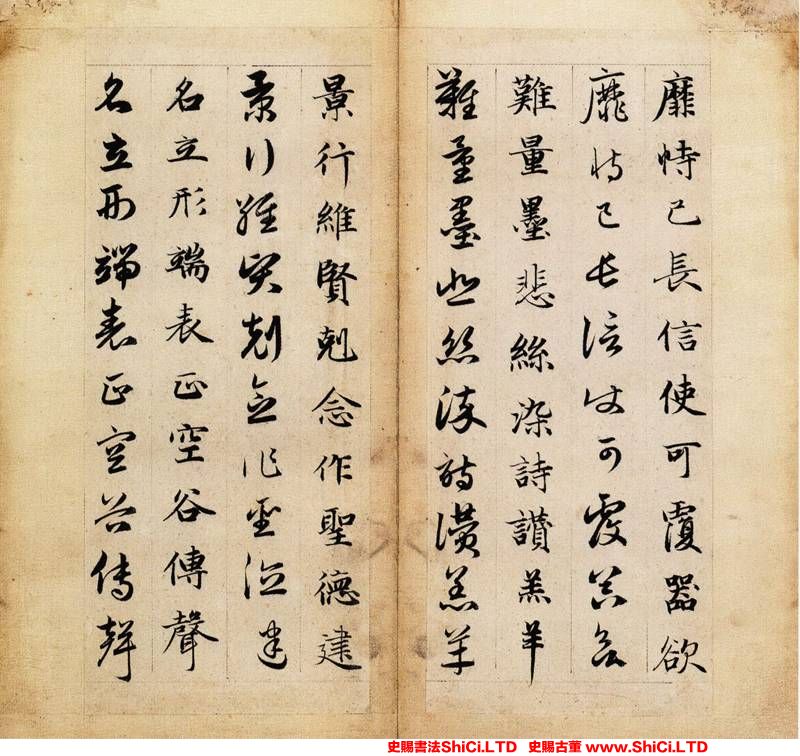 靡恃己長信使可覆器欲
靡恃己長信使可覆器欲
難量墨悲絲染詩讚羔羊
難量墨悲絲染詩讚羔羊
景行維賢剋念作聖德建
景行維賢剋念作聖德建
名立形端表正空谷傳聲
名立形端表正空谷傳聲
史賜書法ShiCi.LTD 史賜古董 www.ShiCi.LTD